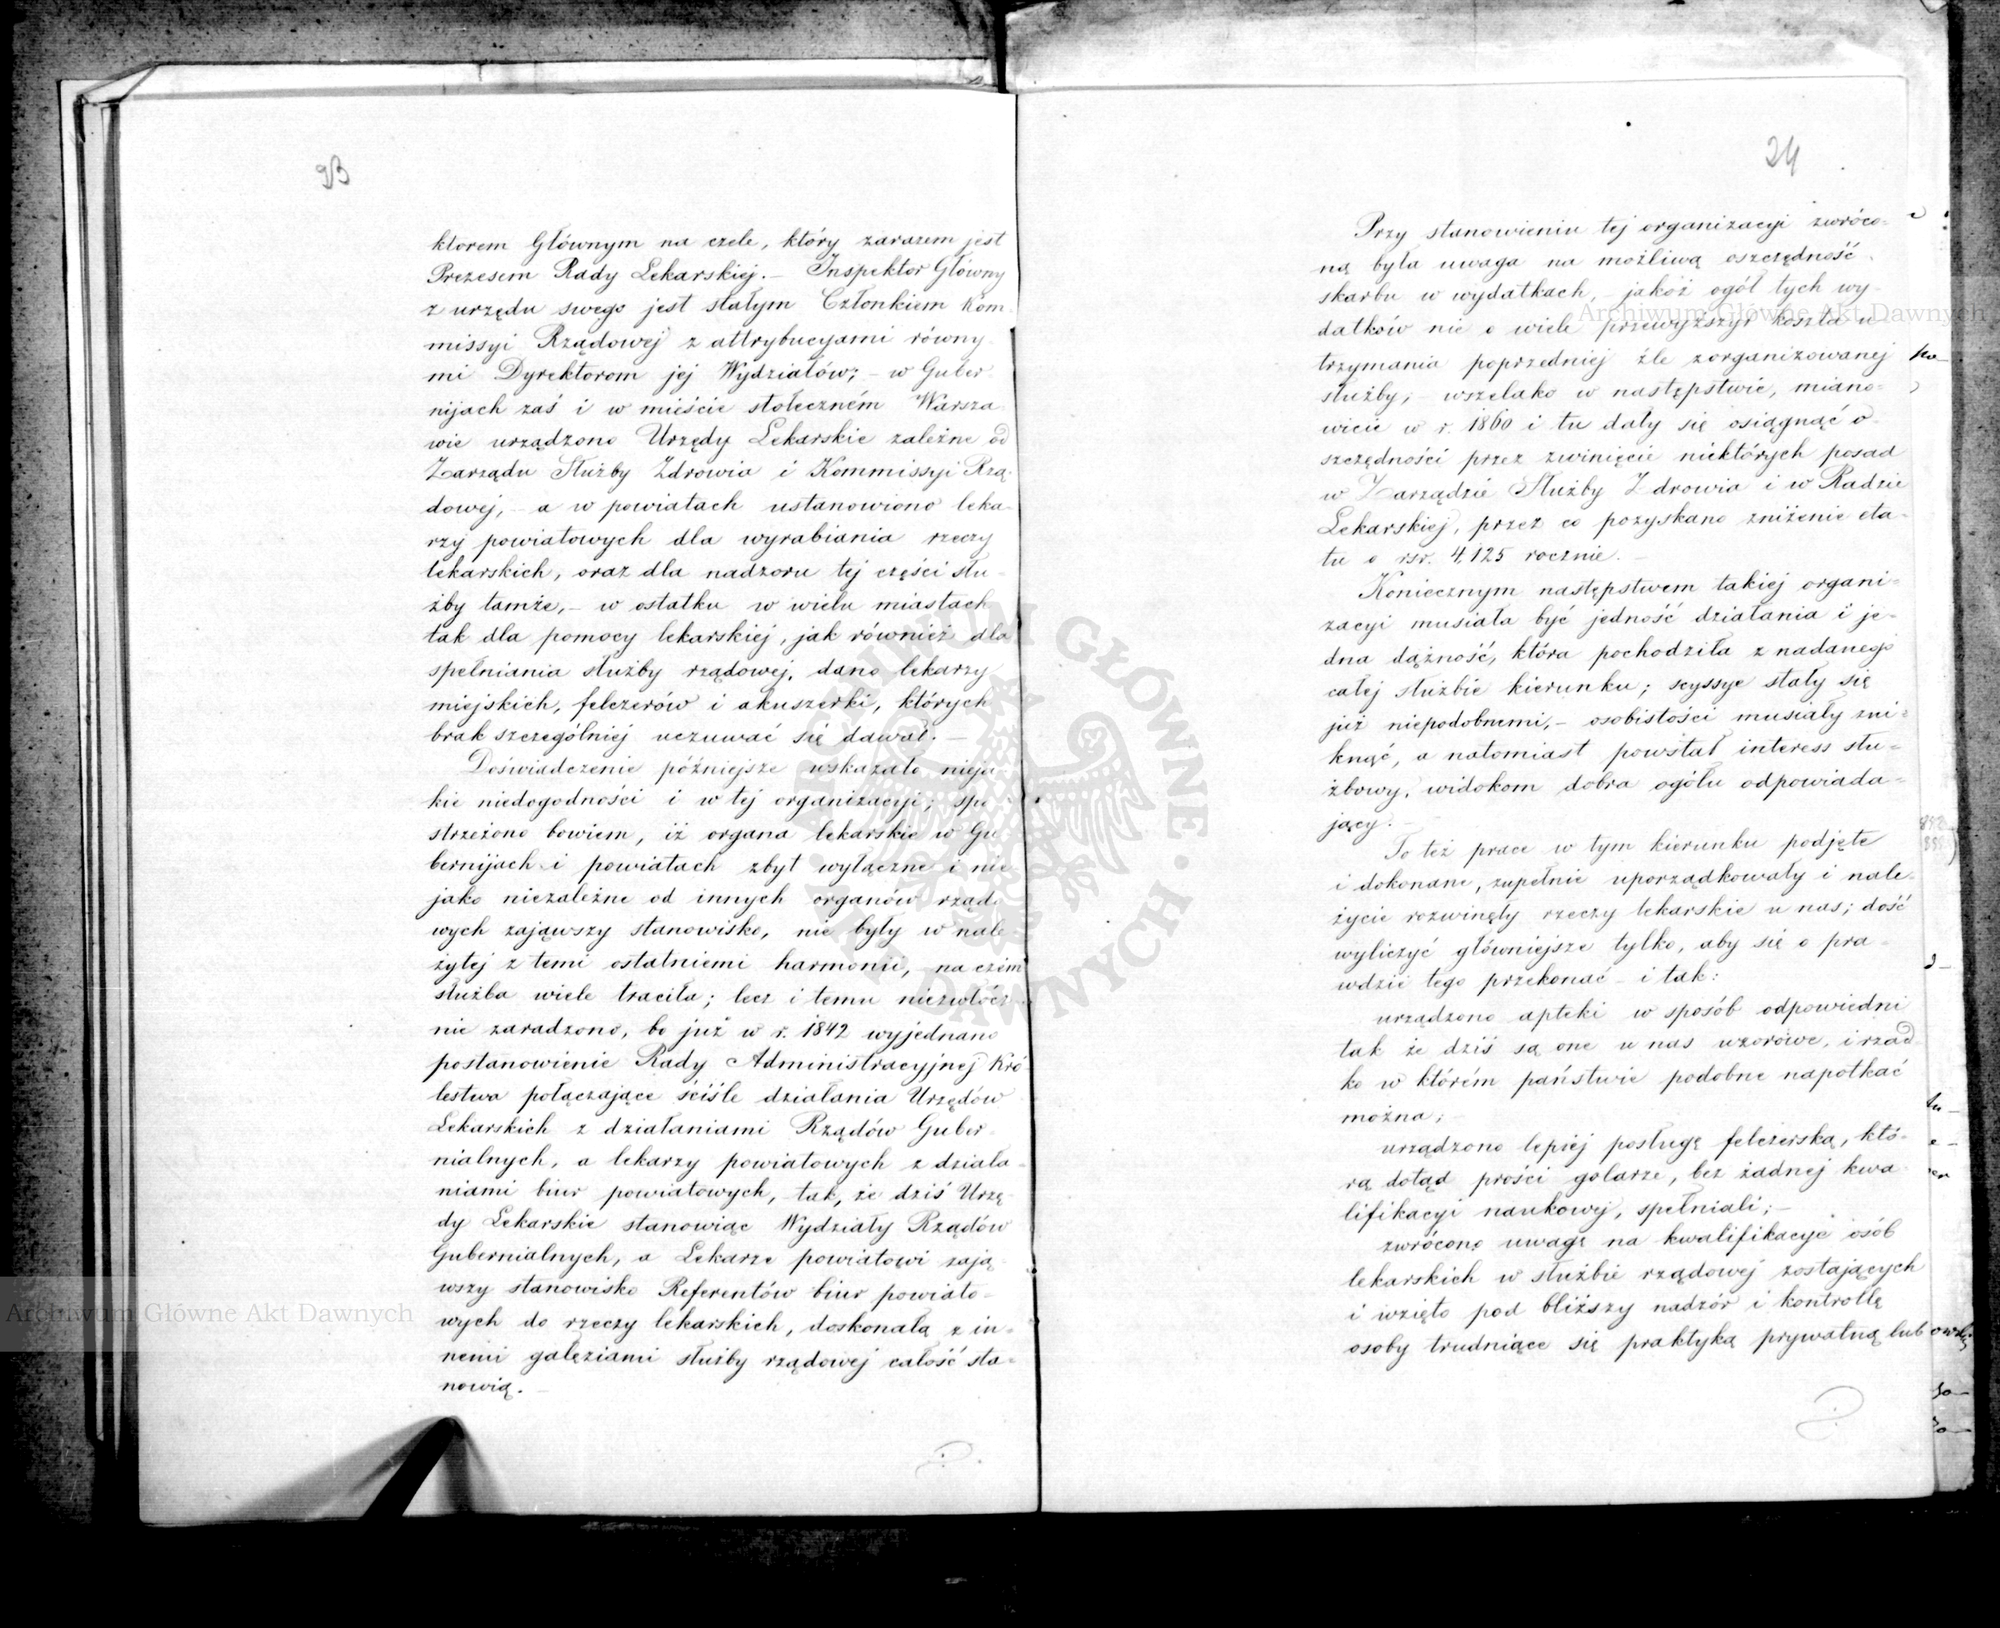 23
ktorem Głównym na czele, który zarazem jest
Prezesem Rady Lekarskiej. – Inspektor Główny
z urzędu swego jest stałym Członkiem Kom-
missyi Rządowej z attrybucyami równy-
mi Dyrektorom jej Wydziałów; – w Guber-
nijach zaś i w mieście stołeczném Warsza-
wie urządzono Urzędy Lekarskie zależne od
Zarządu Służby Zdrowia i Kommissyi Rzą-
dowej, – a w powiatach ustanowiono leka-
rzy powiatowych dla wyrabiania rzeczy
lekarskich, oraz dla nadzoru tej części słu-
żby tamże, – w ostatku w wielu miastach
tak dla pomocy lekarskiej, jak również dla
spełniania służby rządowej, dano lekarzy
miejskich, felczerów i akuszerki, których
brak szczególniej uczuwać się dawał. –
Doświadczenie późniejsze wskazało nieja-
kie niedogodności i w tej organizacyi; spo-
strzeżono bowiem, iż organa lekarskie w Gu-
bernijach i powiatach zbyt wyłączne i nie-
jako niezależne od innych organów rządo-
wych zająwszy stanowisko, nie były w nale-
żytej z temi ostatniemi harmonii, na czém
służba wiele traciła; lecz i temu niezwłócz-
nie zaradzono, bo już w r. 1842 wyjednano
postanowienie Rady Administracyjnej Kró-
lestwa połączające ściśle działania Urzędów
Lekarskich z działaniami Rządów Guber-
nialnych, a lekarzy powiatowych z działa-
niami biur powiatowych, tak, że dziś Urzę-
dy Lekarskie stanowiąc Wydziały Rządów
Gubernialnych, a Lekarze powiatowi zają-
wszy stanowisko Referentów biur powiato-
wych do rzeczy lekarskich, doskonałą z in-
nemi gałęziami służby rządowej całość sta-
nowią. –
24
Przy stanowieniu tej organizacyi zwróco-
ną była uwaga na możliwą oszczędność
skarbu w wydatkach, – jakoż ogół tych wy-
datków nie o wiele przewyższył koszta u-
trzymania poprzedniej źle zorganizowanej
służby; – wszelako w następstwie, miano-
wicie w r. 1860 i tu dały się osiągnąć o-
szczędności przez zwinięcie niektórych posad
w Zarządzie Służby Zdrowia i w Radzie
Lekarskiej, przez co pozyskano zniżenie eta-
tu o rsr. 4,125 rocznie. –
Koniecznym następstwem takiej organi-
zacyi musiała być jedność działania i je-
dna dążność, która pochodziła z nadanego
całej służbie kierunku; scyssye stały się
już niepodobnemi, – osobistości musiały zni-
knąć, a natomiast powstał interess słu-
żbowy, widokom dobra ogółu odpowiada-
jący. –
To też prace w tym kierunku podjęte
i dokonane, zupełnie uporządkowały i nale-
życie rozwinęły rzeczy lekarskie u nas; dość
wyliczyć główniejsze tylko, aby się o pra-
wdzie tego przekonać – i tak:
urządzono apteki w sposób odpowiedni
tak że dziś są one u nas wzorowe, i rzad-
ko w którém państwie podobne napotkać
można; –
urządzono lepiej posługę felczerską, któ-
rą dotąd prości golarze, bez żadnej kwa-
lifikacyi naukowej, spełniali; –
zwrócono uwagę na kwalifikacye osób
lekarskich w służbie rządowej zostających
i wzięto pod bliższy nadzór i kontrollę
osoby trudniące się praktyką prywatną lub
Archiwum Główne Akt Dawnych
Archiwum Główne Akt Dawnych
ARCHIWUM GŁÓWNE AKT DAWNYCH